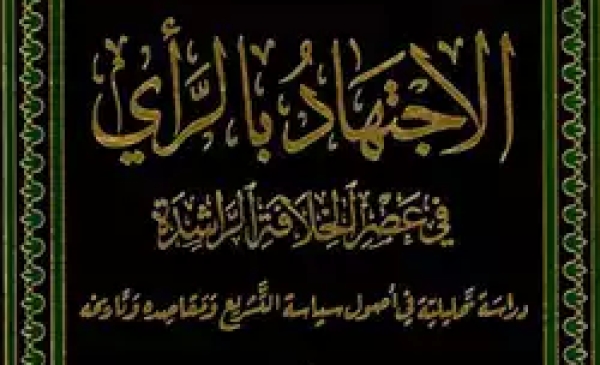 الاجتهادُ بالرَّأي
في عَصْرِ الخِلَافَةِ الرَّاشِدَةِ
دراسَة تحليليّة في أصول سياسة التَّشريع وَمَقاصِده وَتَاريخه